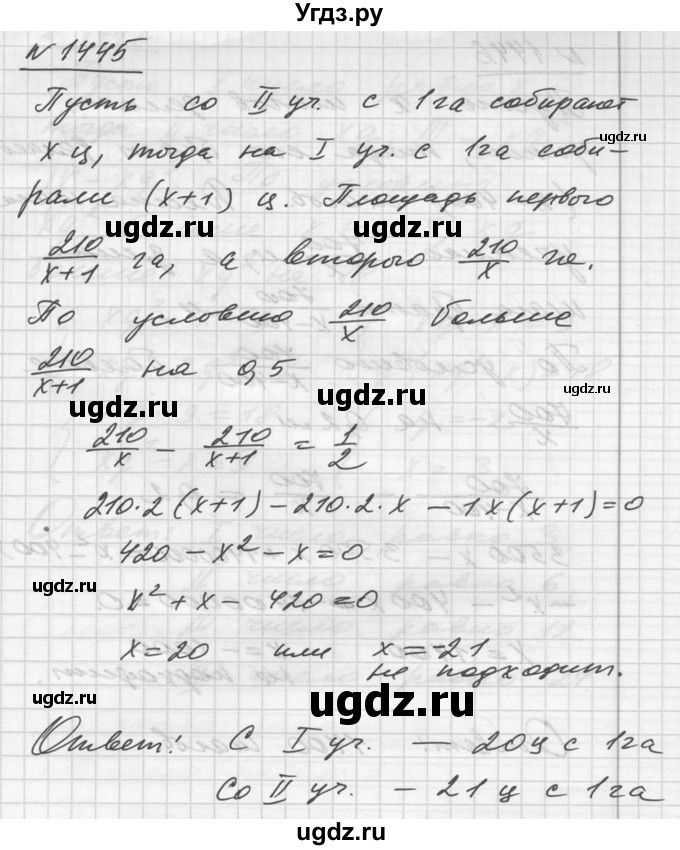 Угдз.ру
N 1445
Пусть со II уч. с 1га собирают
x ц, тогда на I уч. с 1га соби-
рали (x+1) ц. Площадь первого
210/(x+1) га, а второго 210/x га.
По условию 210/x больше
210/(x+1) на 0,5
210/x - 210/(x+1) = 1/2
210·2(x+1) - 210·2·x - 1x(x+1)=0
420 - x² - x = 0
x² + x - 420 = 0
x = 20 или x = -21
не подходит.
Ответ: С I уч. — 20ц с 1га
Со II уч. — 21 ц с 1га
ugdz.ru
ugdz.ru
ugdz.ru
ugdz.ru
ugdz.ru
ugdz.ru
ugdz.ru
ugdz.ru
ugdz.ru
ugdz.ru
ugdz.ru